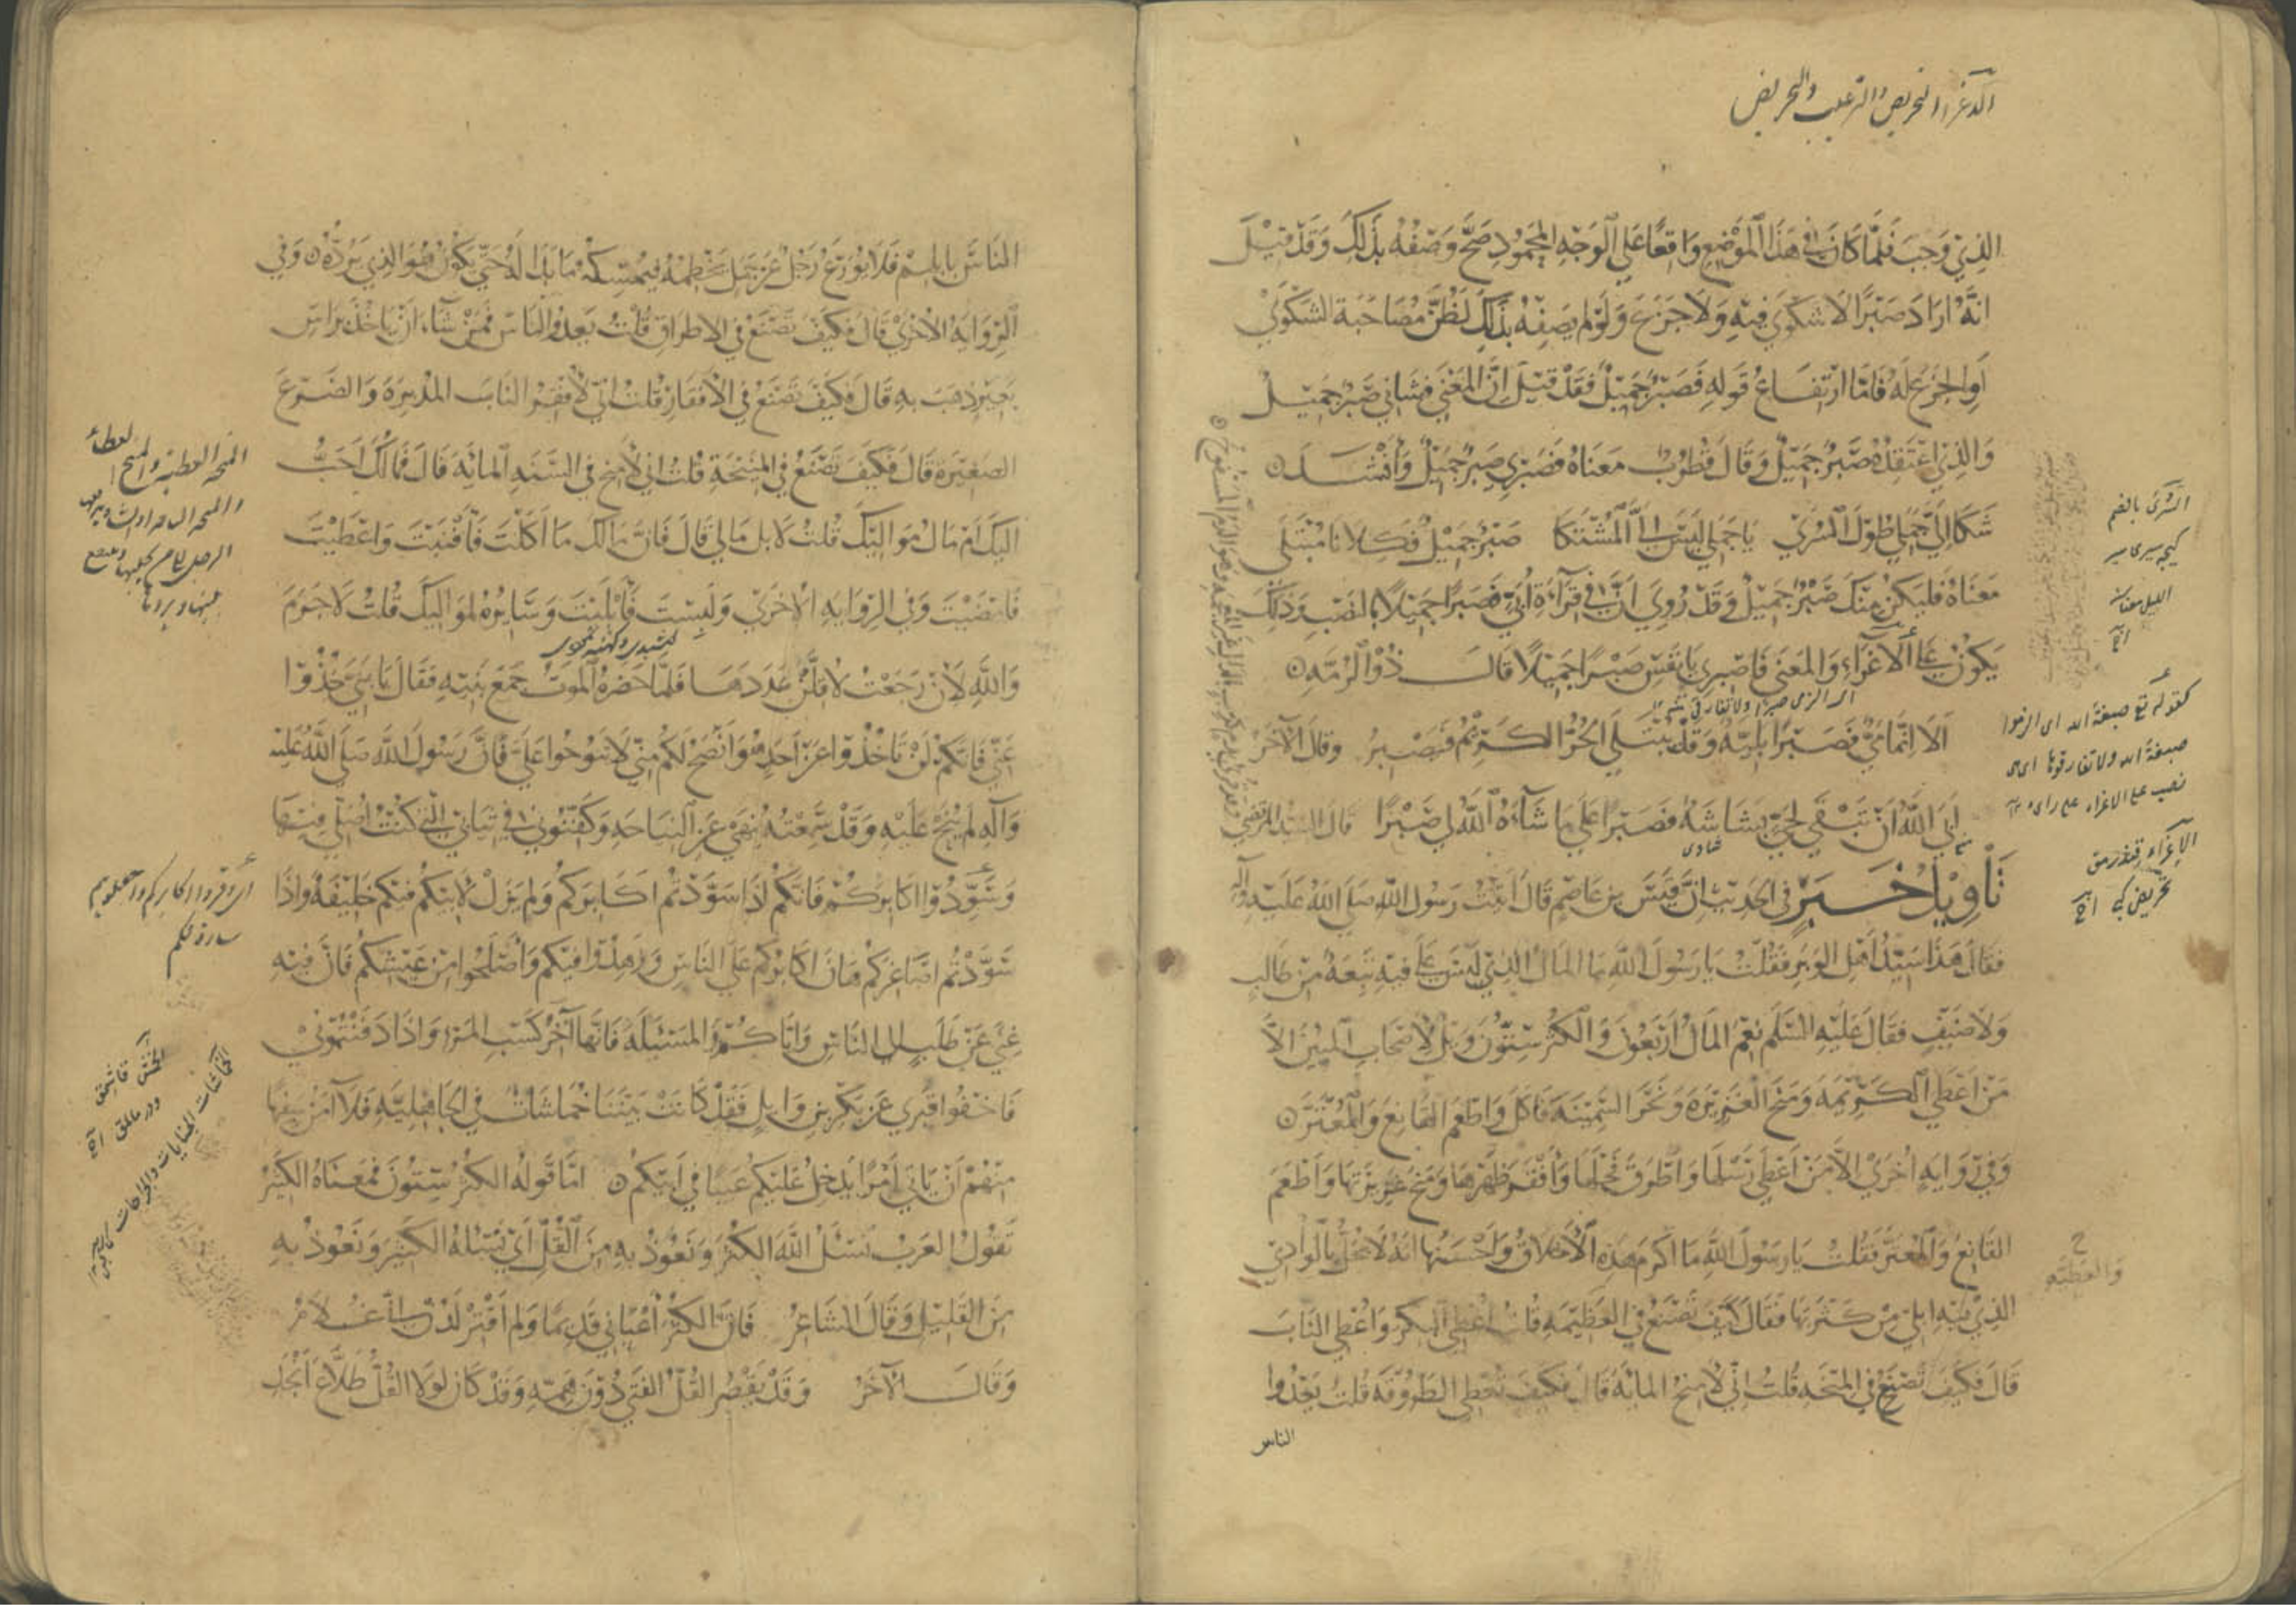 الاغراء التحريص والترغيب والتحريض
الذي وجب فلما كان في هذا الموضع واقعا على الوجه المحمود صح وصفه بذلك وقد قيل
انه اراد صبرا لا شكوى فيه ولا جزع ولو لم يصفه بذلك لظن مصاحبة الشكوى
او الجزع له فاما ارتفاع قوله فصبر جميل فقد قيل ان المعنى فشاني صبر جميل
والذي اعتقده صبر جميل وقال قطرب معناه فصبري صبر جميل وأنشد
شكا الي جملي طول السرى يا جملي ليس الي المشتكا صبر جميل فكلانا مبتلى
معناه فليكن منك صبر جميل وقد روي ان في قراءة أبي فصبرا جميلا بالنصب وذلك
يكون على الاغراء والمعنى فاصبري يا نفس صبرا جميلا قال ذو الرمه
الا انما مي فصبرا بليه وقد يبتلى الحر الكريم فيصبر وقال الآخر
ابى الله أن تبقى لحي بشاشة فصبرا على ما شاءه الله لي صبرا قال السيد المرتضى
تأويل خبر في الحديث ان قيس بن عاصم قال أتيت رسول الله صلى الله عليه وآله
فقال هذا سيد أهل الوبر فقلت يا رسول الله ما المال الذي ليس علي فيه تبعة من طالب
ولا ضيف فقال عليه السلم نعم المال أربعون والكثر ستون وويل لأصحاب المئين الا
من اعطى الكريمه ومنح الغزيرة ونحر السمينة فأكل واطعم القانع والمعتر
وفي رواية اخرى الا من أعطى رسلها واطرق فحلها وأفقر ظهرها ومنح غزيرتها وأطعم
القانع والمعتر فقلت يا رسول الله ما اكرم هذه الأخلاق وأحسنها انه لا يحل بالوادي
والعطيه
الذي فيه ابلي من كثرتها فقال كيف تصنع في العطيه قلت أعطي البكر وأعطي الناب
قال فكيف تصنع في المنحه قلت اني لأمنح المائة قال فكيف تعطي الطروقة قلت يغدوا
الناس
السرى بالضم
كيجه
كقوله تع صبغة الله اى الزموا
صبغة الله ولا تفارقوها اى
نصب على الاغراء على راى
الإغراء
الناس بابلهم فلا يورع رجل عن جمل يخطمه فيمسكه ما بدا له حتى يكون هو الذي يرده وفي
الرواية الاخرى قال فكيف تصنع في الاطراق قلت يغدو الناس فمن شاء ان ياخذ براس
بعير ذهب به قال فكيف تصنع في الأفقار قلت اني لأفقر الناب المدبرة والضرع
الصغيرة قال فكيف تصنع في المنيحة قلت اني لأمنح في السنه المائه قال فمالك احب
اليك ام مال مواليك قلت لا بل مالي قال فان مالك ما اكلت فأفنيت واعطيت
فامضيت وفي الرواية الاخرى ولبست فأبليت وسايره لمواليك قلت لا جرم
والله لان رجعت لأقلن عددها فلما حضره الموت جمع بنيه فقال يا بني خذوا
عني فانكم لن تأخذوا عن احد هو انصح لكم مني لا تنوحوا علي فان رسول الله صلى الله عليه
وآله لم ينح عليه وقد سمعته ينهى عن النياحه وكفنوني في ثيابي التي كنت أصلي فيها
وسودوا اكابركم فانكم اذا سودتم اكابركم ولم يزل لأبيكم فيكم خليفة واذا
سودتم اصاغركم هان اكابركم على الناس وزهدوا فيكم وأصلحوا من عيشكم فان فيه
غنى عن طلب الى الناس واياكم والمسئلة فانها آخر كسب المرء واذا دفنتموني
فاخفوا قبري عن بكر بن وايل فقد كانت بيننا خماشات في الجاهليه فلا آمن سفيها
منهم أن يأتي أمرا يدخل عليكم عيبا في أبيكم اما قوله الكثر ستون فمعناه الكثير
تقول العرب نسئل الله الكثر ونعوذ به من القل أي نسئله الكثير ونعوذ به
من القليل وقال الشاعر فان الكثر أعياني قديما ولم اقتر لدن اني غلام
وقال الآخر وقد يقصر القل الفتى دون همه وقد كان لولا القل طلاع أنجد
المنحه العطية والمنح العطاء
اى وقروا اكابركم واجعلوهم
الخماشات الجنايات والجراحات